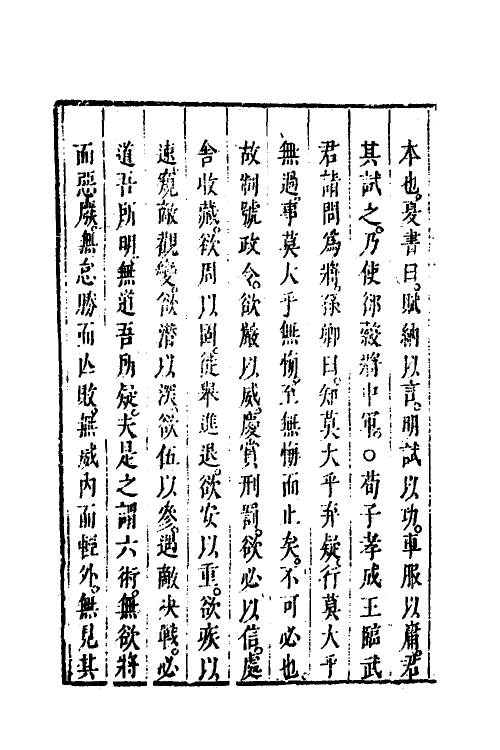 本也。夏書曰。賦納以言。明試以功。車服以庸。君
其試之。乃使郤縠將中軍。○荀子孝成王臨武
君請問為將。孫卿曰。知莫大乎棄疑。行莫大乎
無過。事莫大乎無悔。至無悔而止矣。不可必也。
故制號政令。欲嚴以威。慶賞刑罰。欲必以信。處
舍收藏。欲周以固。徙舉進退。欲安以重。欲疾以
速。窺敵觀變。欲潛以深。欲伍以參。遇敵決戰。必
道吾所明。無道吾所疑。夫是之謂六術。無欲將
而惡廢。無怠勝而忘敗。無威內而輕外。無見其